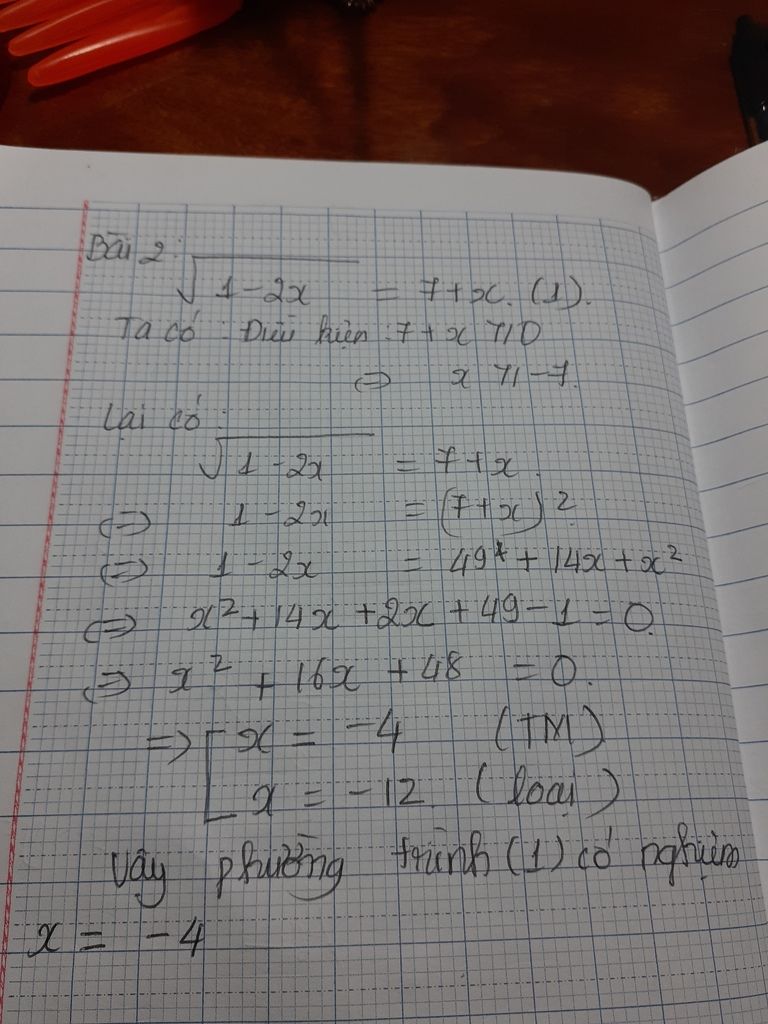 Bài 2:
√1-2x = 7+x. (1).
Ta có: Điều kiện: 7+x ≥ 0
⇔ x ≥ -7.
Lại có:
√1-2x = 7+x
⇔ 1-2x = (7+x)²
⇔ 1-2x = 49 + 14x + x²
⇔ x² + 14x + 2x + 49 - 1 = 0.
⇔ x² + 16x + 48 = 0.
⇒ [ x = -4 (TM)
x = -12 (loại)
Vậy phường trình (1) có nghiệm
x = -4